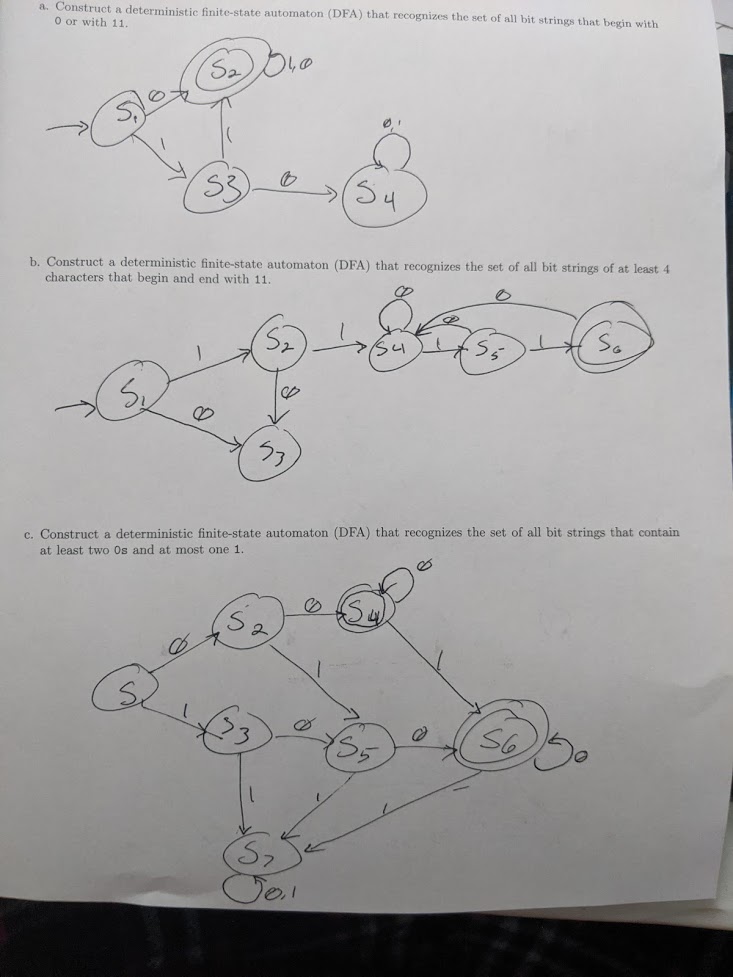 a. Construct a deterministic finite-state automaton (DFA) that recognizes the set of all bit strings that begin with
0 or with 11.
S2
1,0
0
S1
1
1
0,1
S3
0
S4
b. Construct a deterministic finite-state automaton (DFA) that recognizes the set of all bit strings of at least 4
characters that begin and end with 11.
0
0
S2
1
0
1
S4
1
S5
1
S6
S1
0
0
S3
c. Construct a deterministic finite-state automaton (DFA) that recognizes the set of all bit strings that contain
at least two 0s and at most one 1.
0
0
S4
S2
0
1
1
S
1
S3
0
S5
0
S6
0
1
1
1
S7
0,1